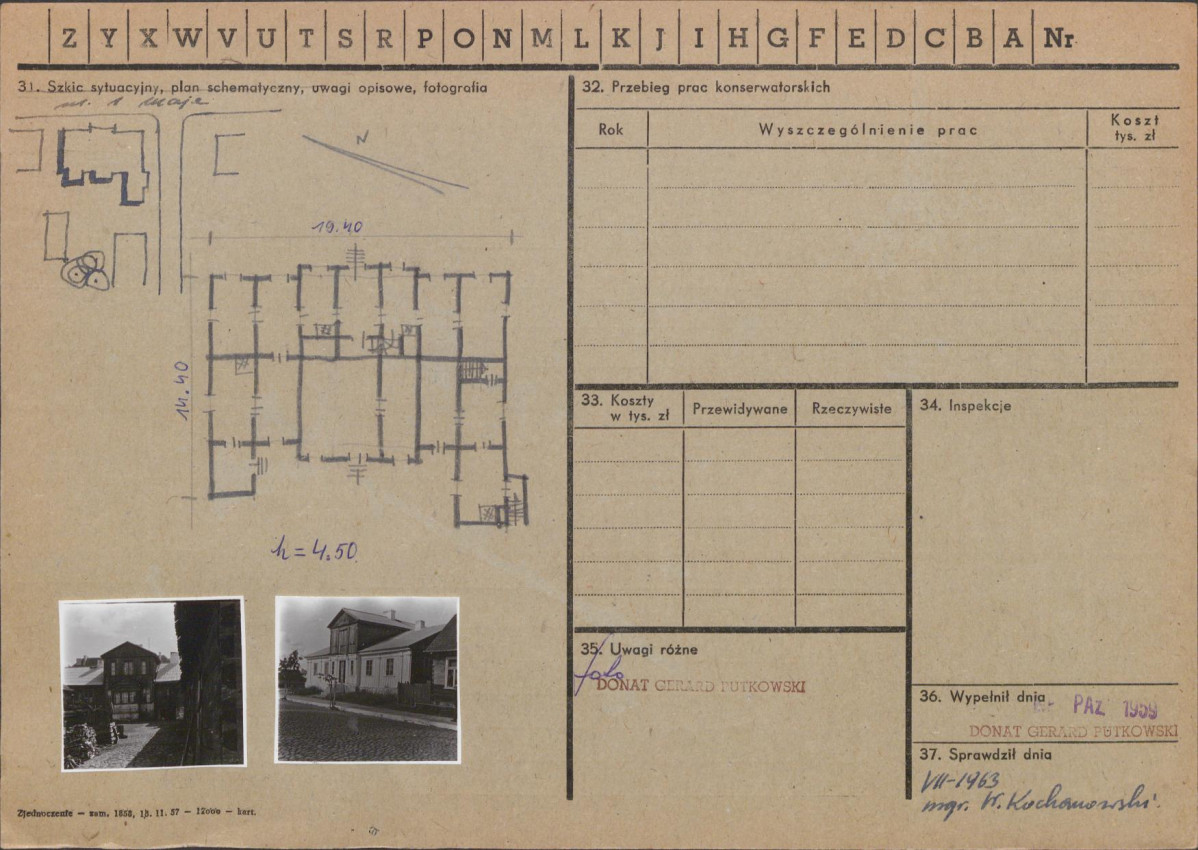 Z Y X W V U T S R P O N M L K J I H G F E D C B A Nr.
31. Szkic sytuacyjny, plan schematyczny, uwagi opisowe, fotografia
ul. 1 Maja
N
19.40
14.40
h = 4.50
32. Przebieg prac konserwatorskich
Rok
Wyszczególnienie prac
Koszt
tys. zł
33. Koszty
w tys. zł
Przewidywane
Rzeczywiste
34. Inspekcje
35. Uwagi różne
foto
DONAT GERARD PUTKOWSKI
36. Wypełnił dnia
PAZ 1959
DONAT GERARD PUTKOWSKI
37. Sprawdził dnia
VII-1963
mgr. W. Kochanowski.
Zjednoczenie — zam. 1858, 15. 11. 57 — 12000 — kart.